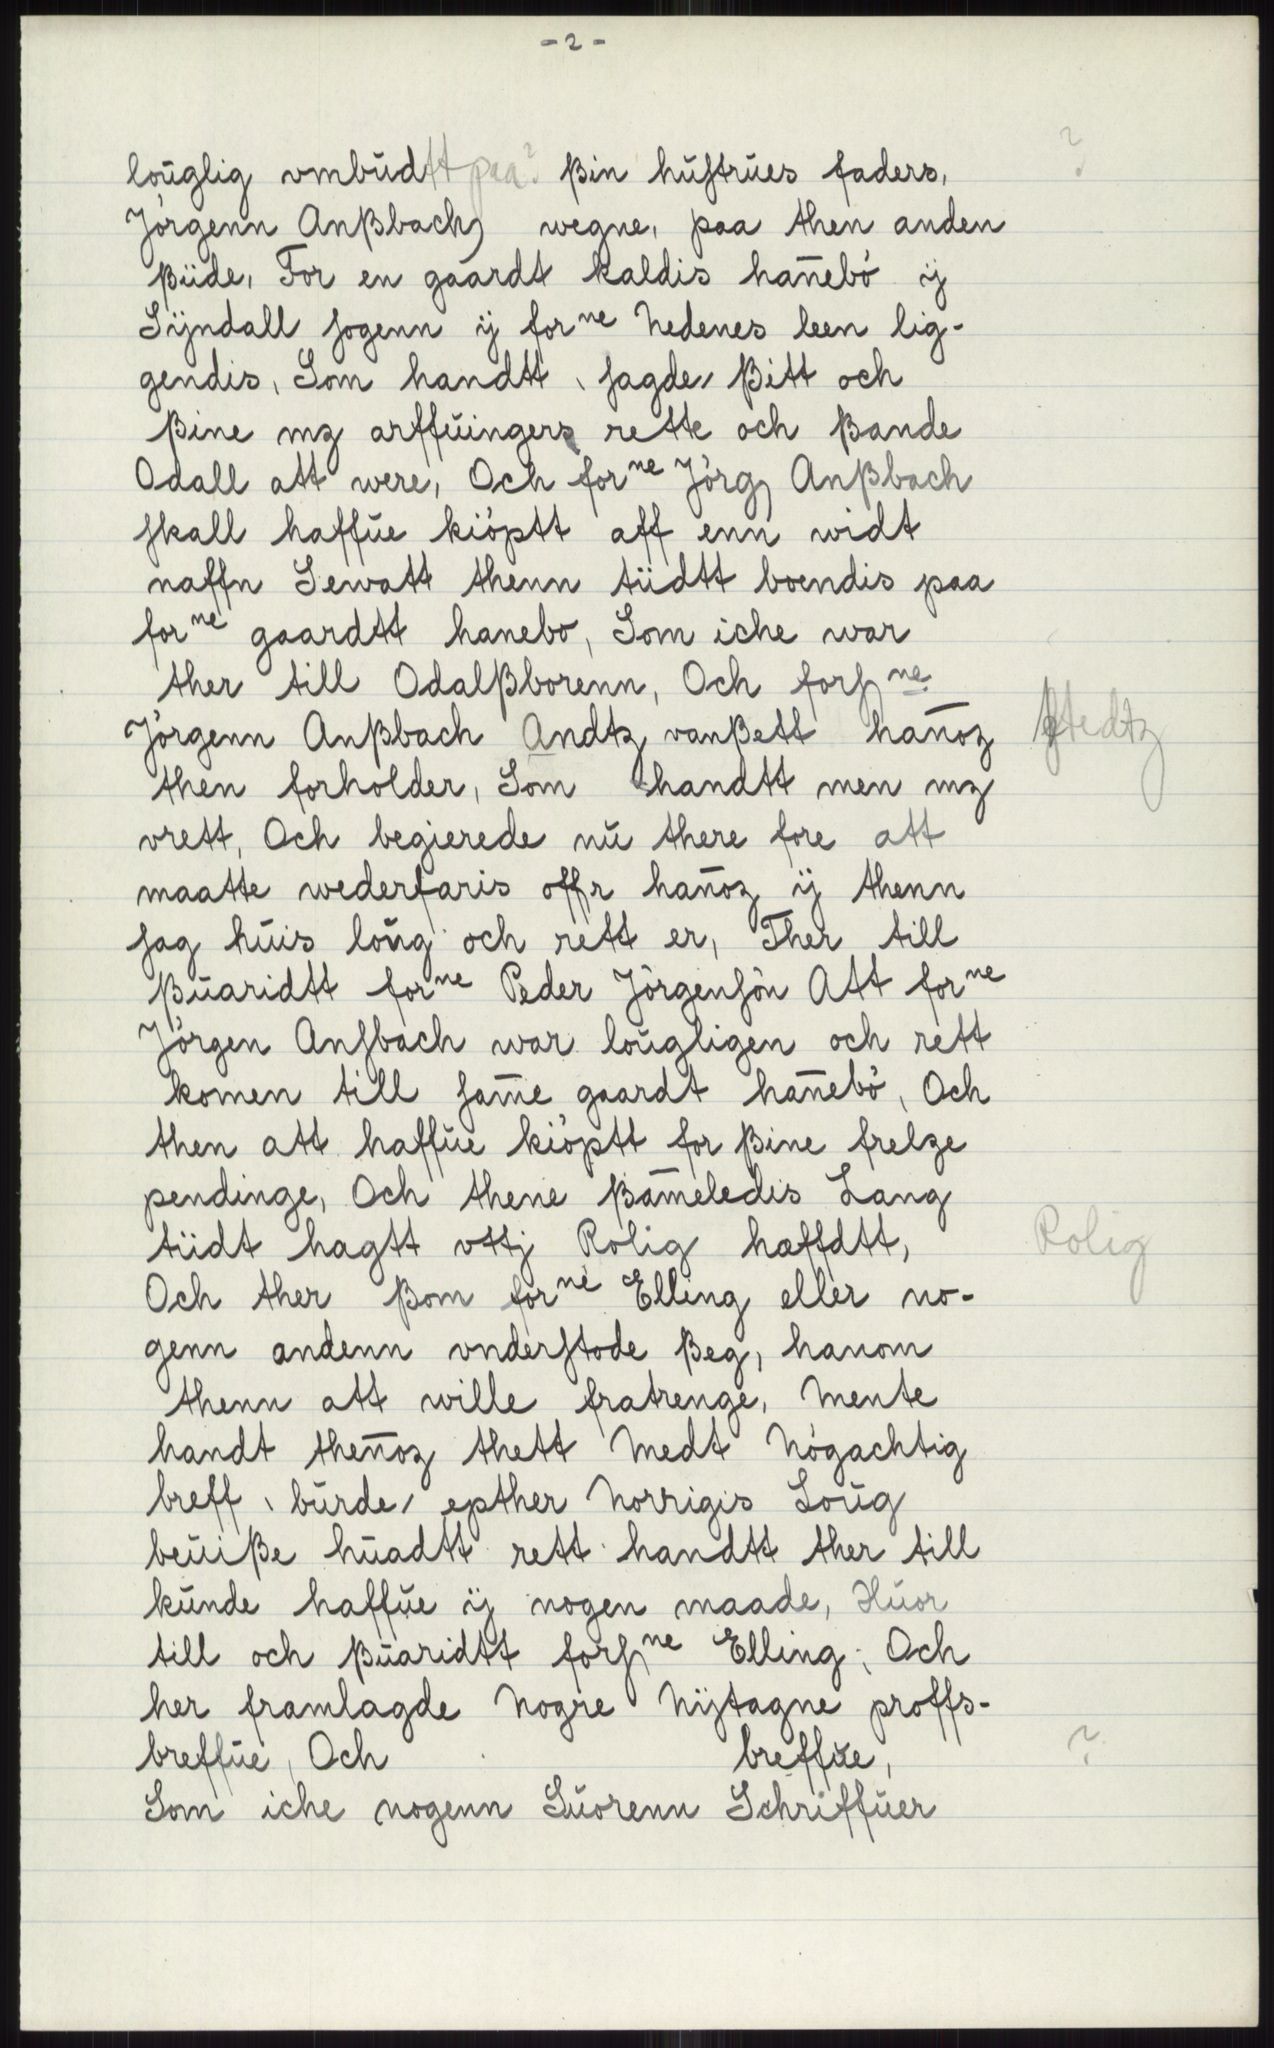 - 2 -
loŭglig vmbŭdtt paa? ßin hŭstrŭes faders, ?
Jörgenn Anßbach wegne, paa then anden
ßiide, For en gaardt kaldis han̄ebö ÿ
Sÿndall sogenn ÿ forne Nedenes leen lig-
gendis, Som handtt, sagde, ßitt och
ßine mz arffŭingers rette och ßande
Odall att were, Och forne Jörg, Anßbach
skall haffŭe kiöptt aff enn widt
naffn Sewatt thenn tiidtt boendis paa
forne gaardtt hanebo, Som iche war
ther till Odalßborenn, Och forsne
Jörgenn Anßbach Andtz vanßett han̄oz stedtz
then forholder, Som handtt men mz
vrett, Och begierede nŭ there fore att
maatte wederfaris offr han̄oz ÿ thenn
sag hŭis loŭg och rett er, Ther till
ßŭaridtt forne Peder Jörgensön Att forne
Jörgen Ansbach war loŭgligen och rett
komen till sam̄e gaardt han̄ebö, Och
then att haffŭe kiöptt for ßine frelze
pendinge, Och thene ßam̄eledis Lang
tiidt hagtt vttj Rolig haffdtt, Rolig
Och ther ßom forne Elling eller no-
genn andenn vnderstode ßeg, hanom
thenn att wille fratrenge, Mente
handt then̄oz thett Medt Nögachtig
breff, bŭrde, epther Norrigis Loŭg
beŭiße hŭadtt rett handtt ther till
kŭnde haffŭe ÿ nogen maade, Hŭor
till och ßŭaridtt forsne Elling, Och
her framlagde Nogre Nÿtagne proffs-
breffŭe, Och breffŭe, ?
Som iche nogenn Sŭorenn Schriffŭer